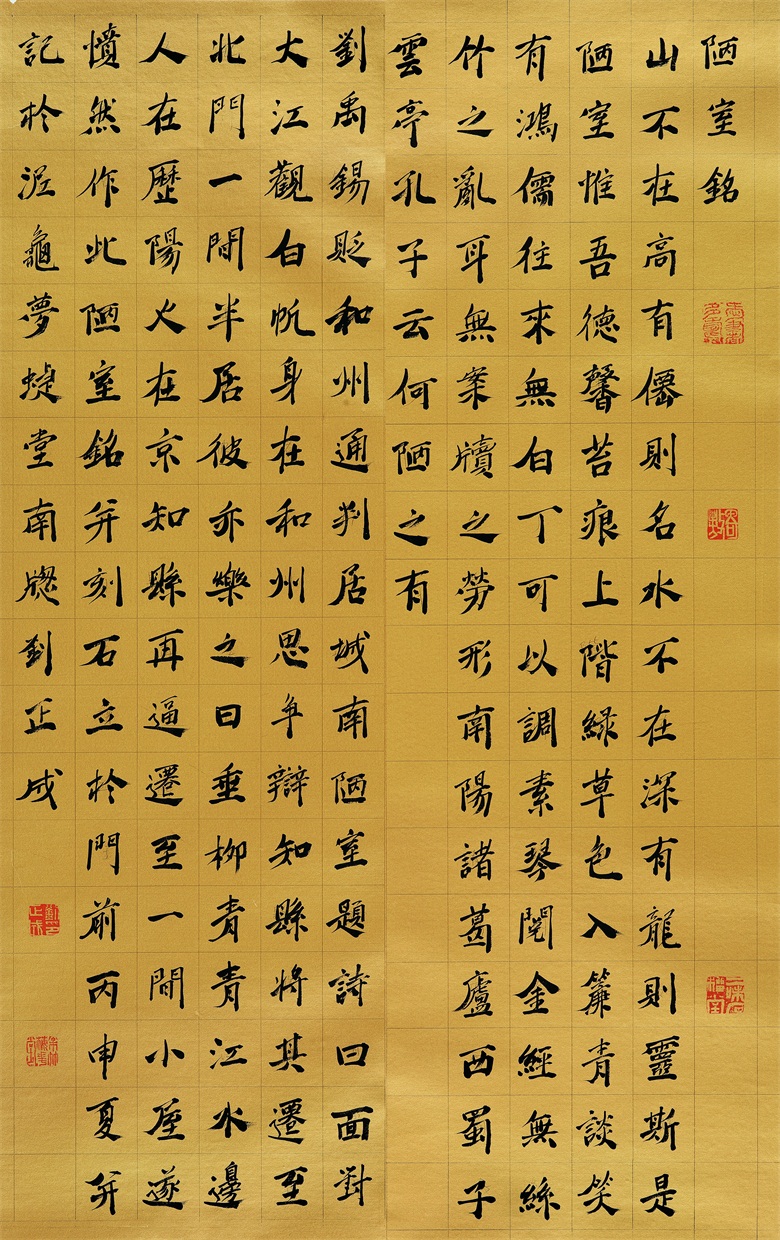 陋室銘
山不在高有僊則名水不在深有龍則靈斯是
陋室惟吾德馨苔痕上階綠草色入簾青談笑
有鴻儒往來無白丁可以調素琴閱金經無絲
竹之亂耳無案牘之勞形南陽諸葛廬西蜀子
雲亭孔子云何陋之有
劉禹錫貶和州通判居城南陋室題詩曰面對
大江觀白帆身在和州思爭辯知縣將其遷至
北門一間半居彼亦樂之曰垂柳青青江水邊
人在歷陽火在京知縣再逼遷至一間小屋遂
憤然作此陋室銘并刻石立於門前丙申夏并
記於泥龜夢蜨堂南牕劉正成